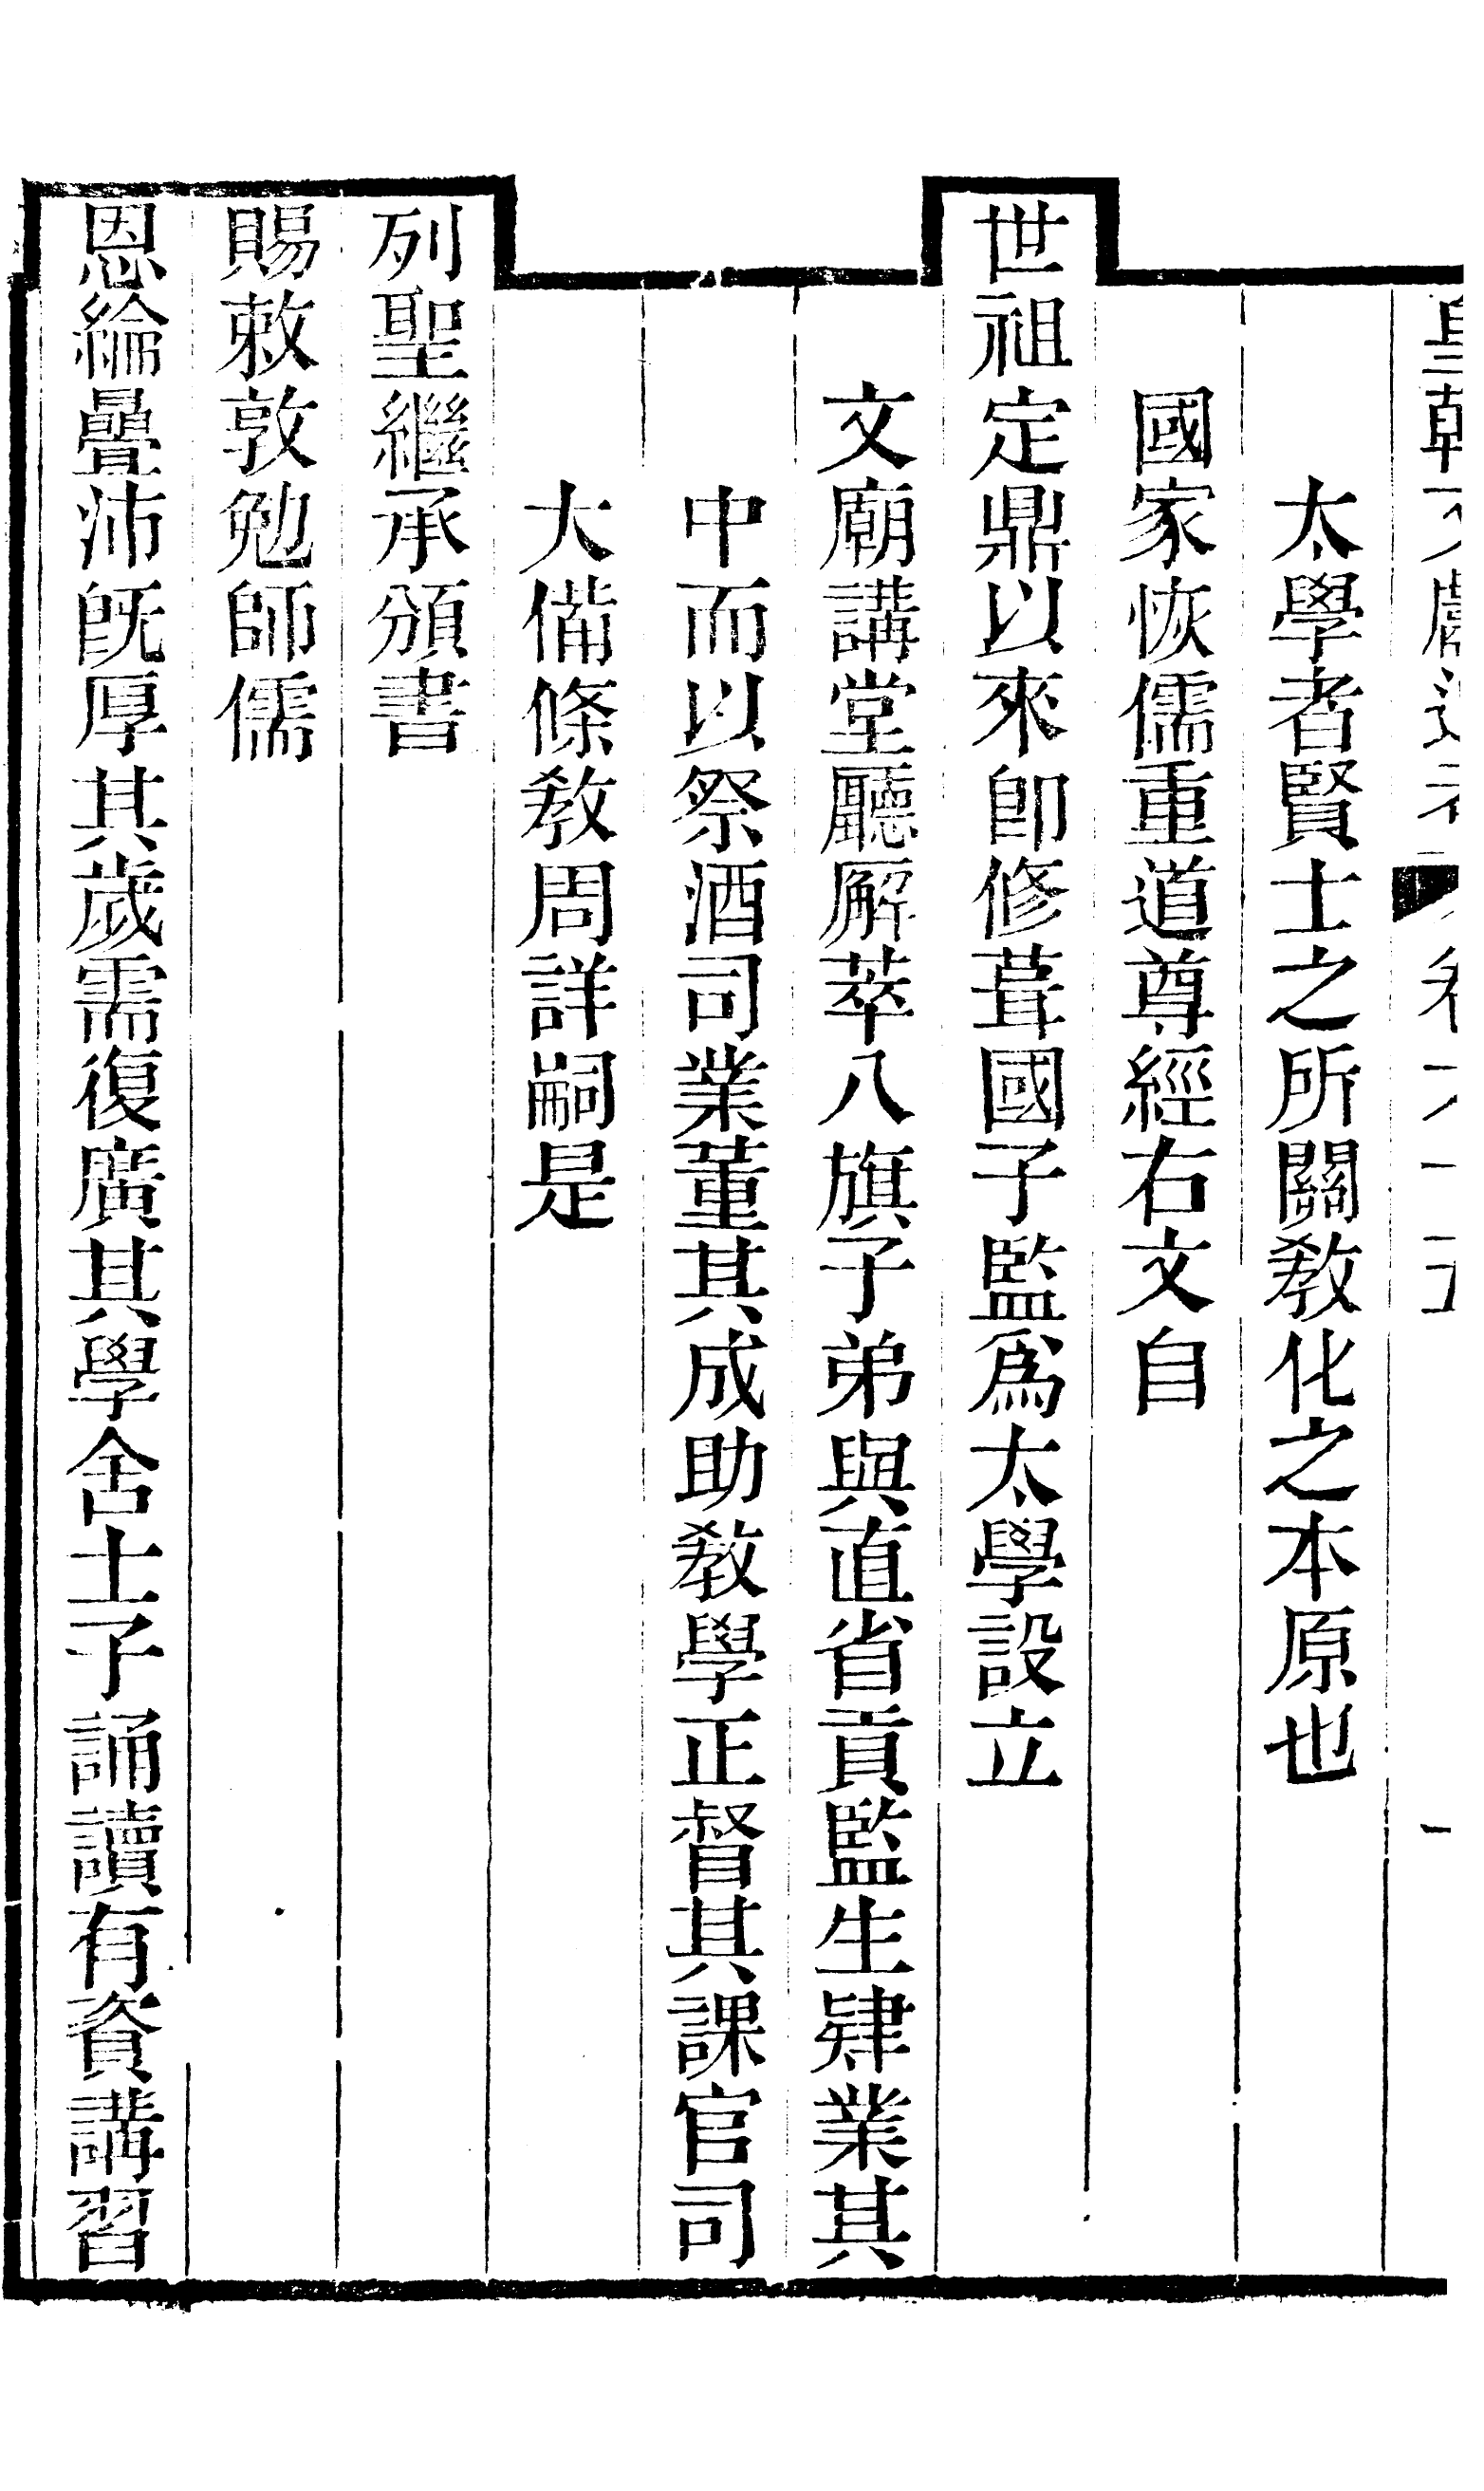 太學者賢士之所關敎化之本原也
國家恢儒重道尊經右文自
世祖定鼎以來卽修葺國子監爲太學設立
文廟講堂廳廨萃八旗子弟與直省貢監生肄業其
中而以祭酒司業董其成助敎學正督其課官司
大備條敎周詳嗣是
列聖繼承頒書
賜敕敦勉師儒
恩綸疊沛旣厚其歲需復廣其學舍士子誦讀有資講習